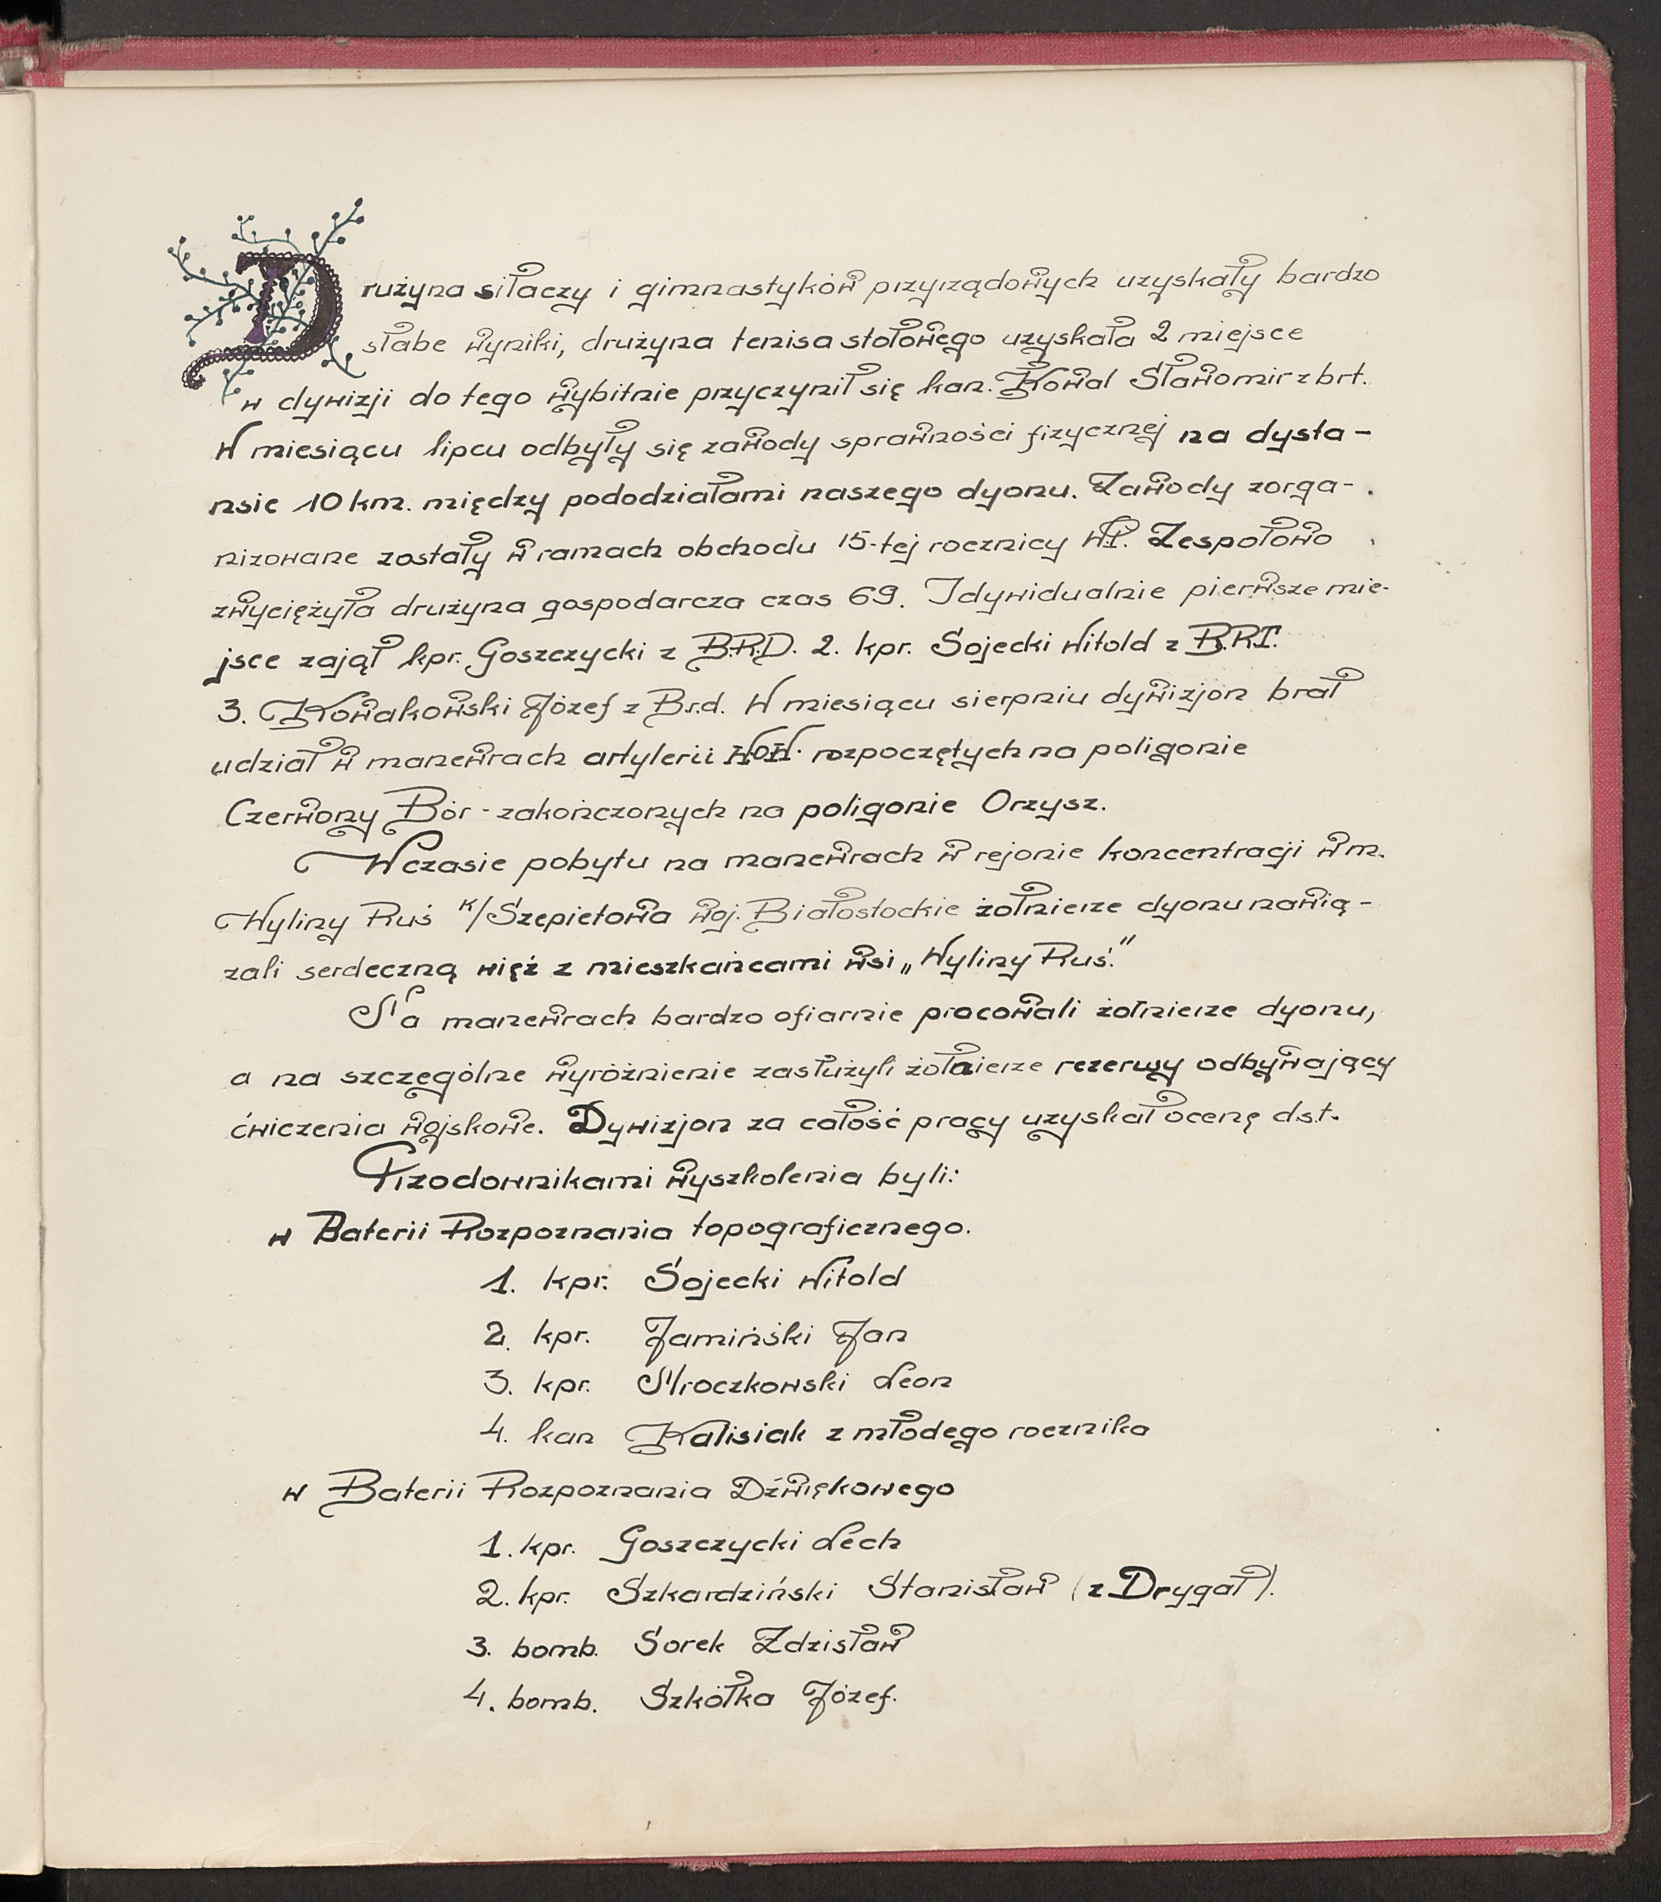 Drużyna siłaczy i gimnastyków przyrządowych uzyskały bardzo
słabe wyniki, drużyna tenisa stołowego uzyskała 2 miejsce
w dywizji do tego wybitnie przyczynił się kan. Kowal Sławomir z brt.
W miesiącu lipcu odbyły się zawody sprawności fizycznej na dysta-
nsie 10 km. między pododziałami naszego dyonu. Zawody zorga-
nizowane zostały w ramach obchodu 15-tej rocznicy W.P. Zespołowo
zwyciężyła drużyna gospodarcza czas 69. Idywidualnie pierwsze mie-
jsce zajął kpr. Goszczycki z B.R.D. 2. kpr. Sojecki Witold z B.R.T.
3. Kowakowski Józef z B.r.d. W miesiącu sierpniu dywizjon brał
udział w manewrach artylerii W.O.W. rozpoczętych na poligonie
Czerwony Bór - zakończonych na poligonie Orzysz.
W czasie pobytu na manewrach w rejonie koncentracji w m.
Wyliny Ruś k/Szepietowa woj. Białostockie żołnierze dyonu nawią-
zali serdeczną więź z mieszkańcami wsi „Wyliny Ruś."
Na manewrach bardzo ofiarnie pracowali żołnierze dyonu,
a na szczególne wyróżnienie zasłużyli żołnierze rezerwy odbywający
ćwiczenia wojskowe. Dywizjon za całość pracy uzyskał ocenę dst.
Przodownikami wyszkolenia byli:
w Baterii Rozpoznania topograficznego.
1. kpr. Sojecki Witold
2. kpr. Jamiński Jan
3. kpr. Mroczkowski Leon
4. kan Kalisiak z młodego rocznika
w Baterii Rozpoznania Dźwiękowego
1. kpr. Goszczycki Lech
2. kpr. Szkardziński Stanisław (z Drygał).
3. bomb. Sorek Zdzisław
4. bomb. Szkółka Józef.